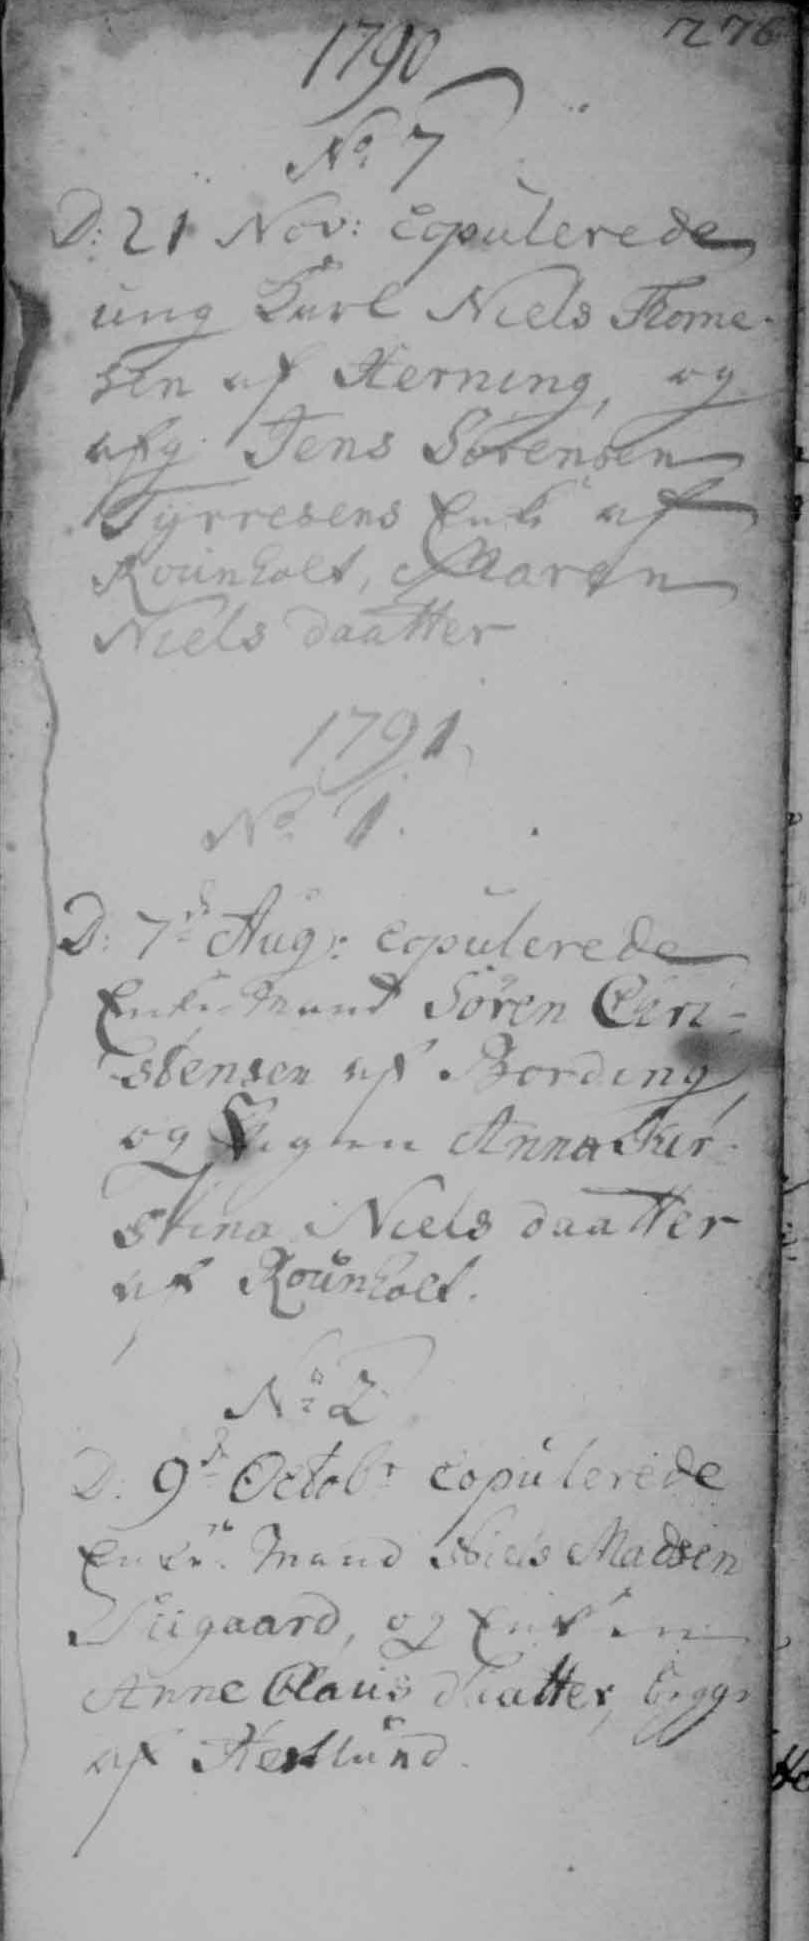 276
1790
No 7
D: 21 Nov: copulerede
ung Karl Niels Thome-
sen af Herning, og
afg. Jens Sörensen
Tyrresens Enke af
Rounholt, Maren
Niels daatter
1791
No 1.
D: 7de Aug: copulerede
Enke-Mand Sören Chri-
stensen af Bording,
og Pigen Anna Kir-
stina Niels daatter
af Rounholt.
No 2
D. 9de Octobr copulerede
Enke-Mand Niels Madsen
og Enken
Anne Claus daatter, begge
af Hestlund.